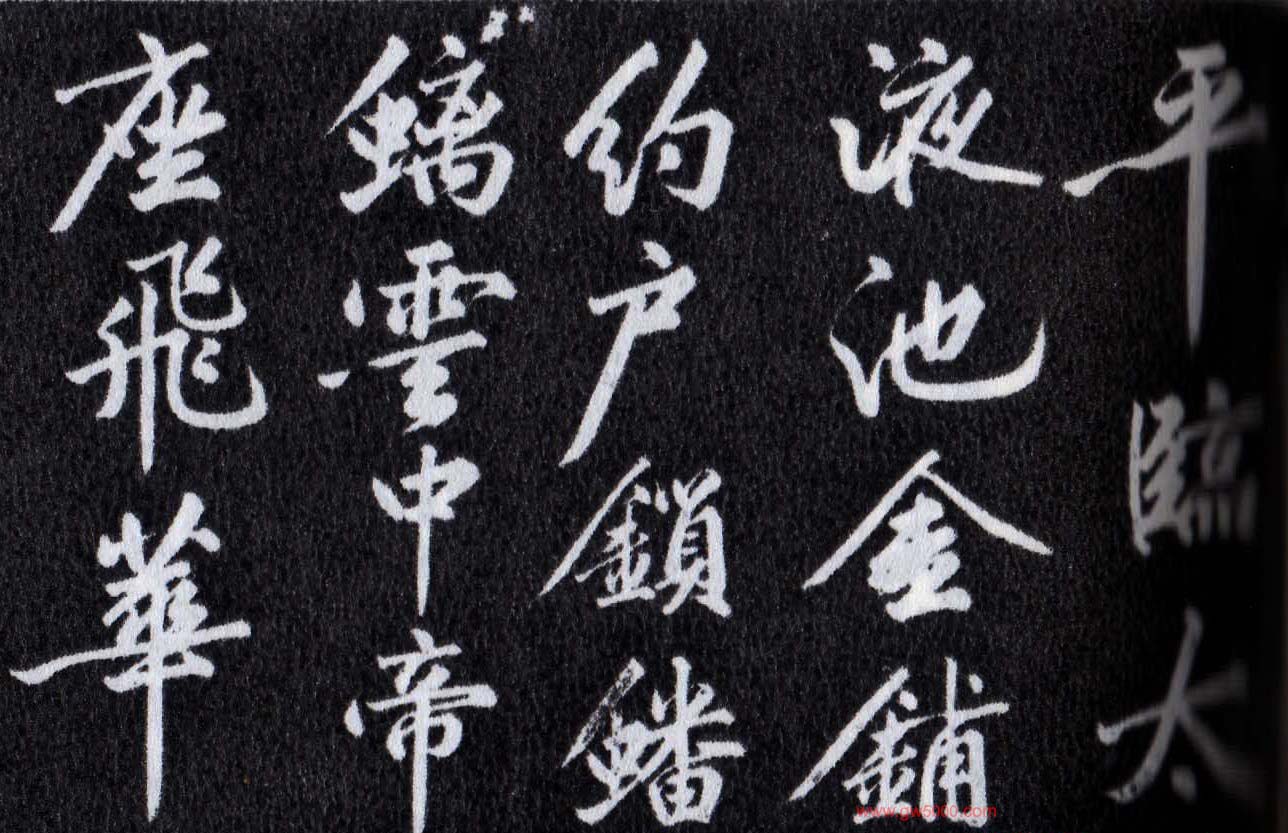 平臨太
液池金鋪
約户鎖蟠
螭雲中帝
座飛華
www.gw5000.com